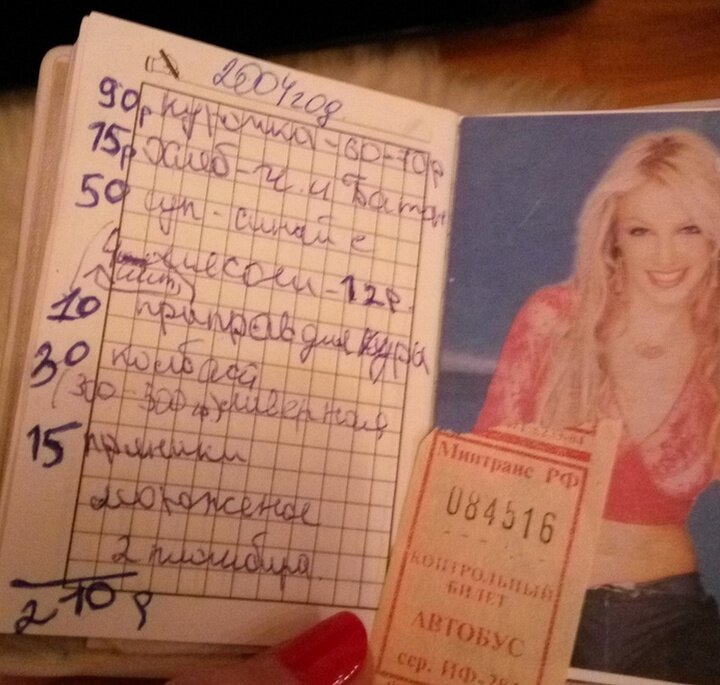 2004 год
90р курочка - 60-70р
15р Хлеб - ч. и Батон
50 суп - синий с
мясом - 12р.
10 приправ для куры
30 колбаса
300 ливерная
15 пряники
мороженое
2 пломбира
210р
Минтранс РФ
084516
КОНТРОЛЬНЫЙ
БИЛЕТ
АВТОБУС
сер. ИФ-